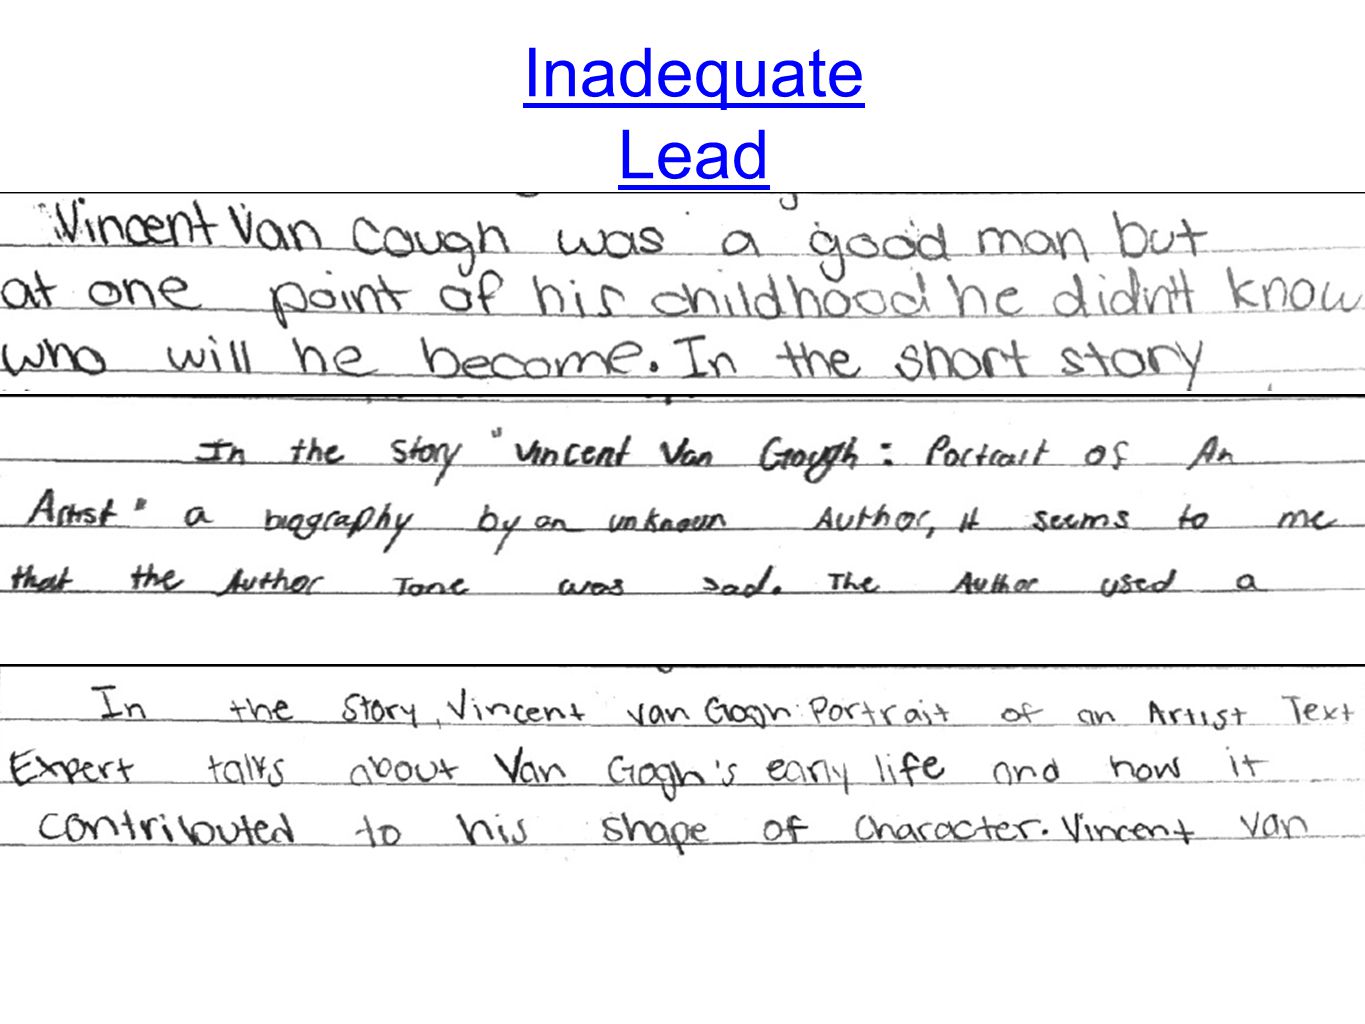 Inadequate
Lead
Vincent Van Cough was a good man but
at one point of his childhood he didn't know
who will he become. In the short story
In the story "Vincent Van Gough: Portrait of An
Artist" a biography by an unknown Author, it seems to me
that the Author Tone was sad. The Author used a
In the story, Vincent van Gogh: Portrait of an Artist Text
Expert talks about Van Gogh's early life and how it
contributed to his shape of character. Vincent van